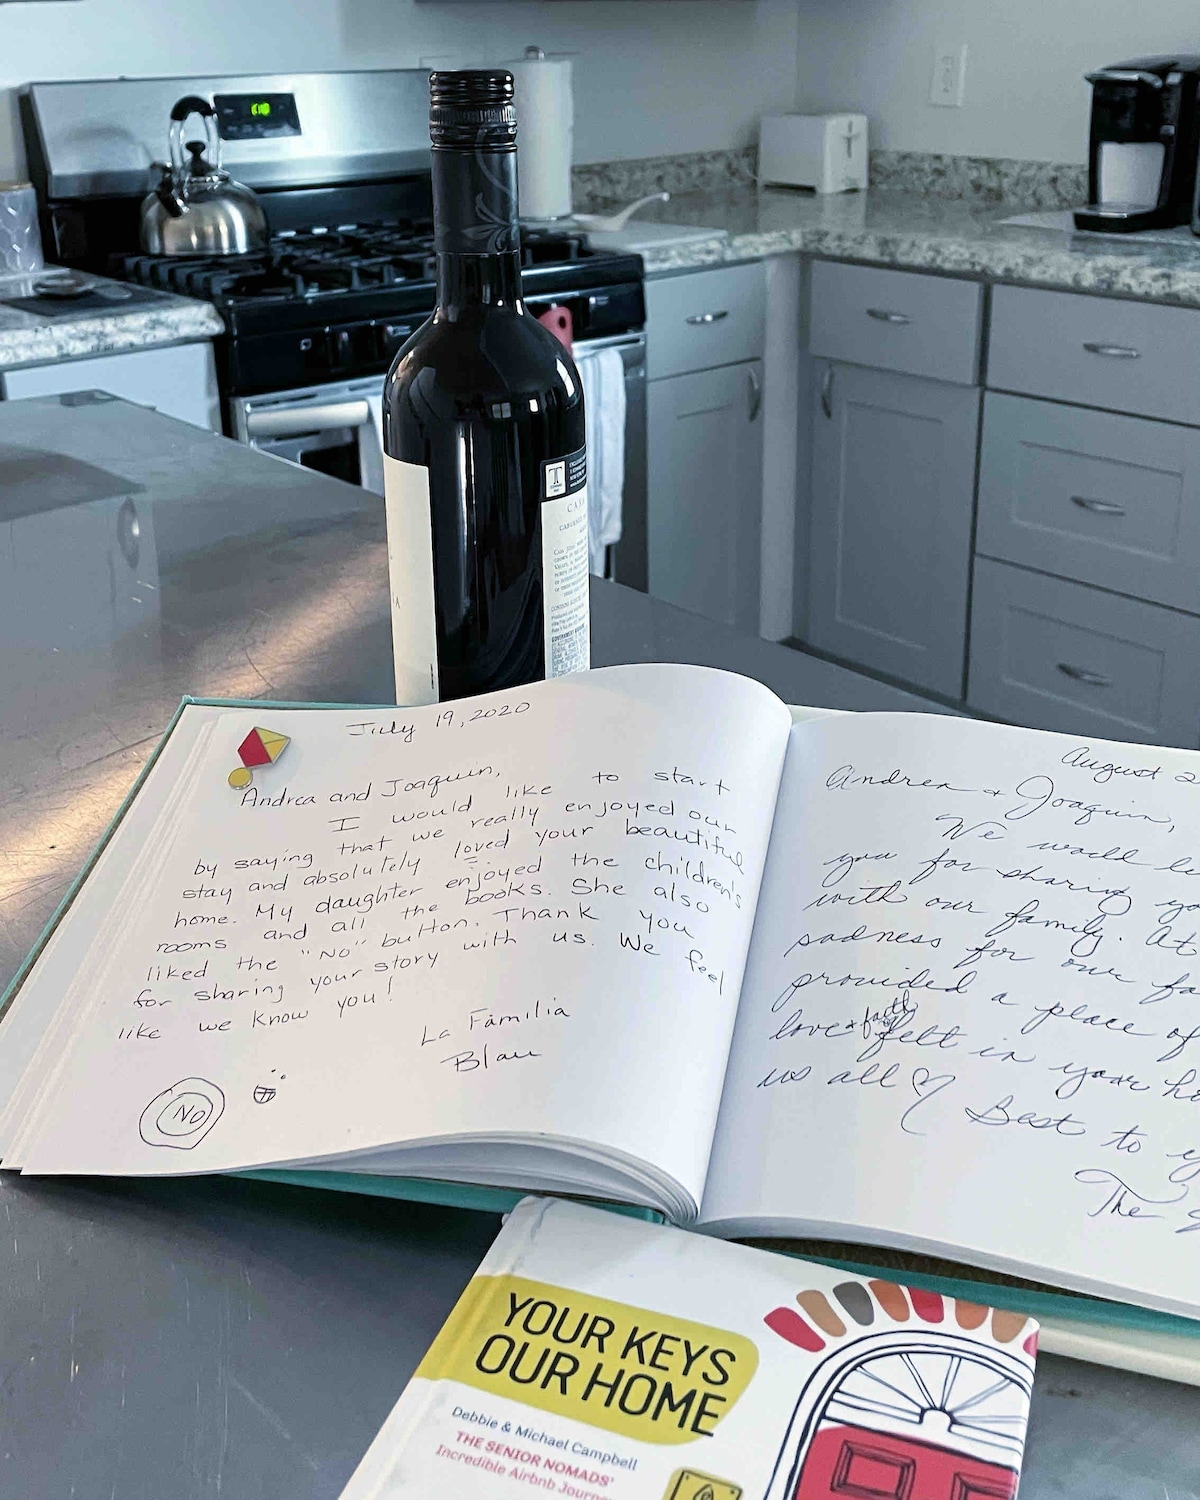 July 19, 2020
Andrea and Joaquin,
I would like to start
by saying that we really enjoyed our
stay and absolutely loved your beautiful
home. My daughter enjoyed the children's
rooms and all the books. She also
liked the "NO" button. Thank you
for sharing your story with us. We feel
like we know you!
La Familia
Blau
NO
August 2
Andrea + Joaquin,
We would
you for sharing
with our family. At
sadness for our
provided a place of
love + faith felt in your
us all
Best to
The
YOUR KEYS
OUR HOME
Debbie & Michael Campbell
THE SENIOR NOMADS'
Incredible Airbnb
T
CABERNET
GOVERNMENT